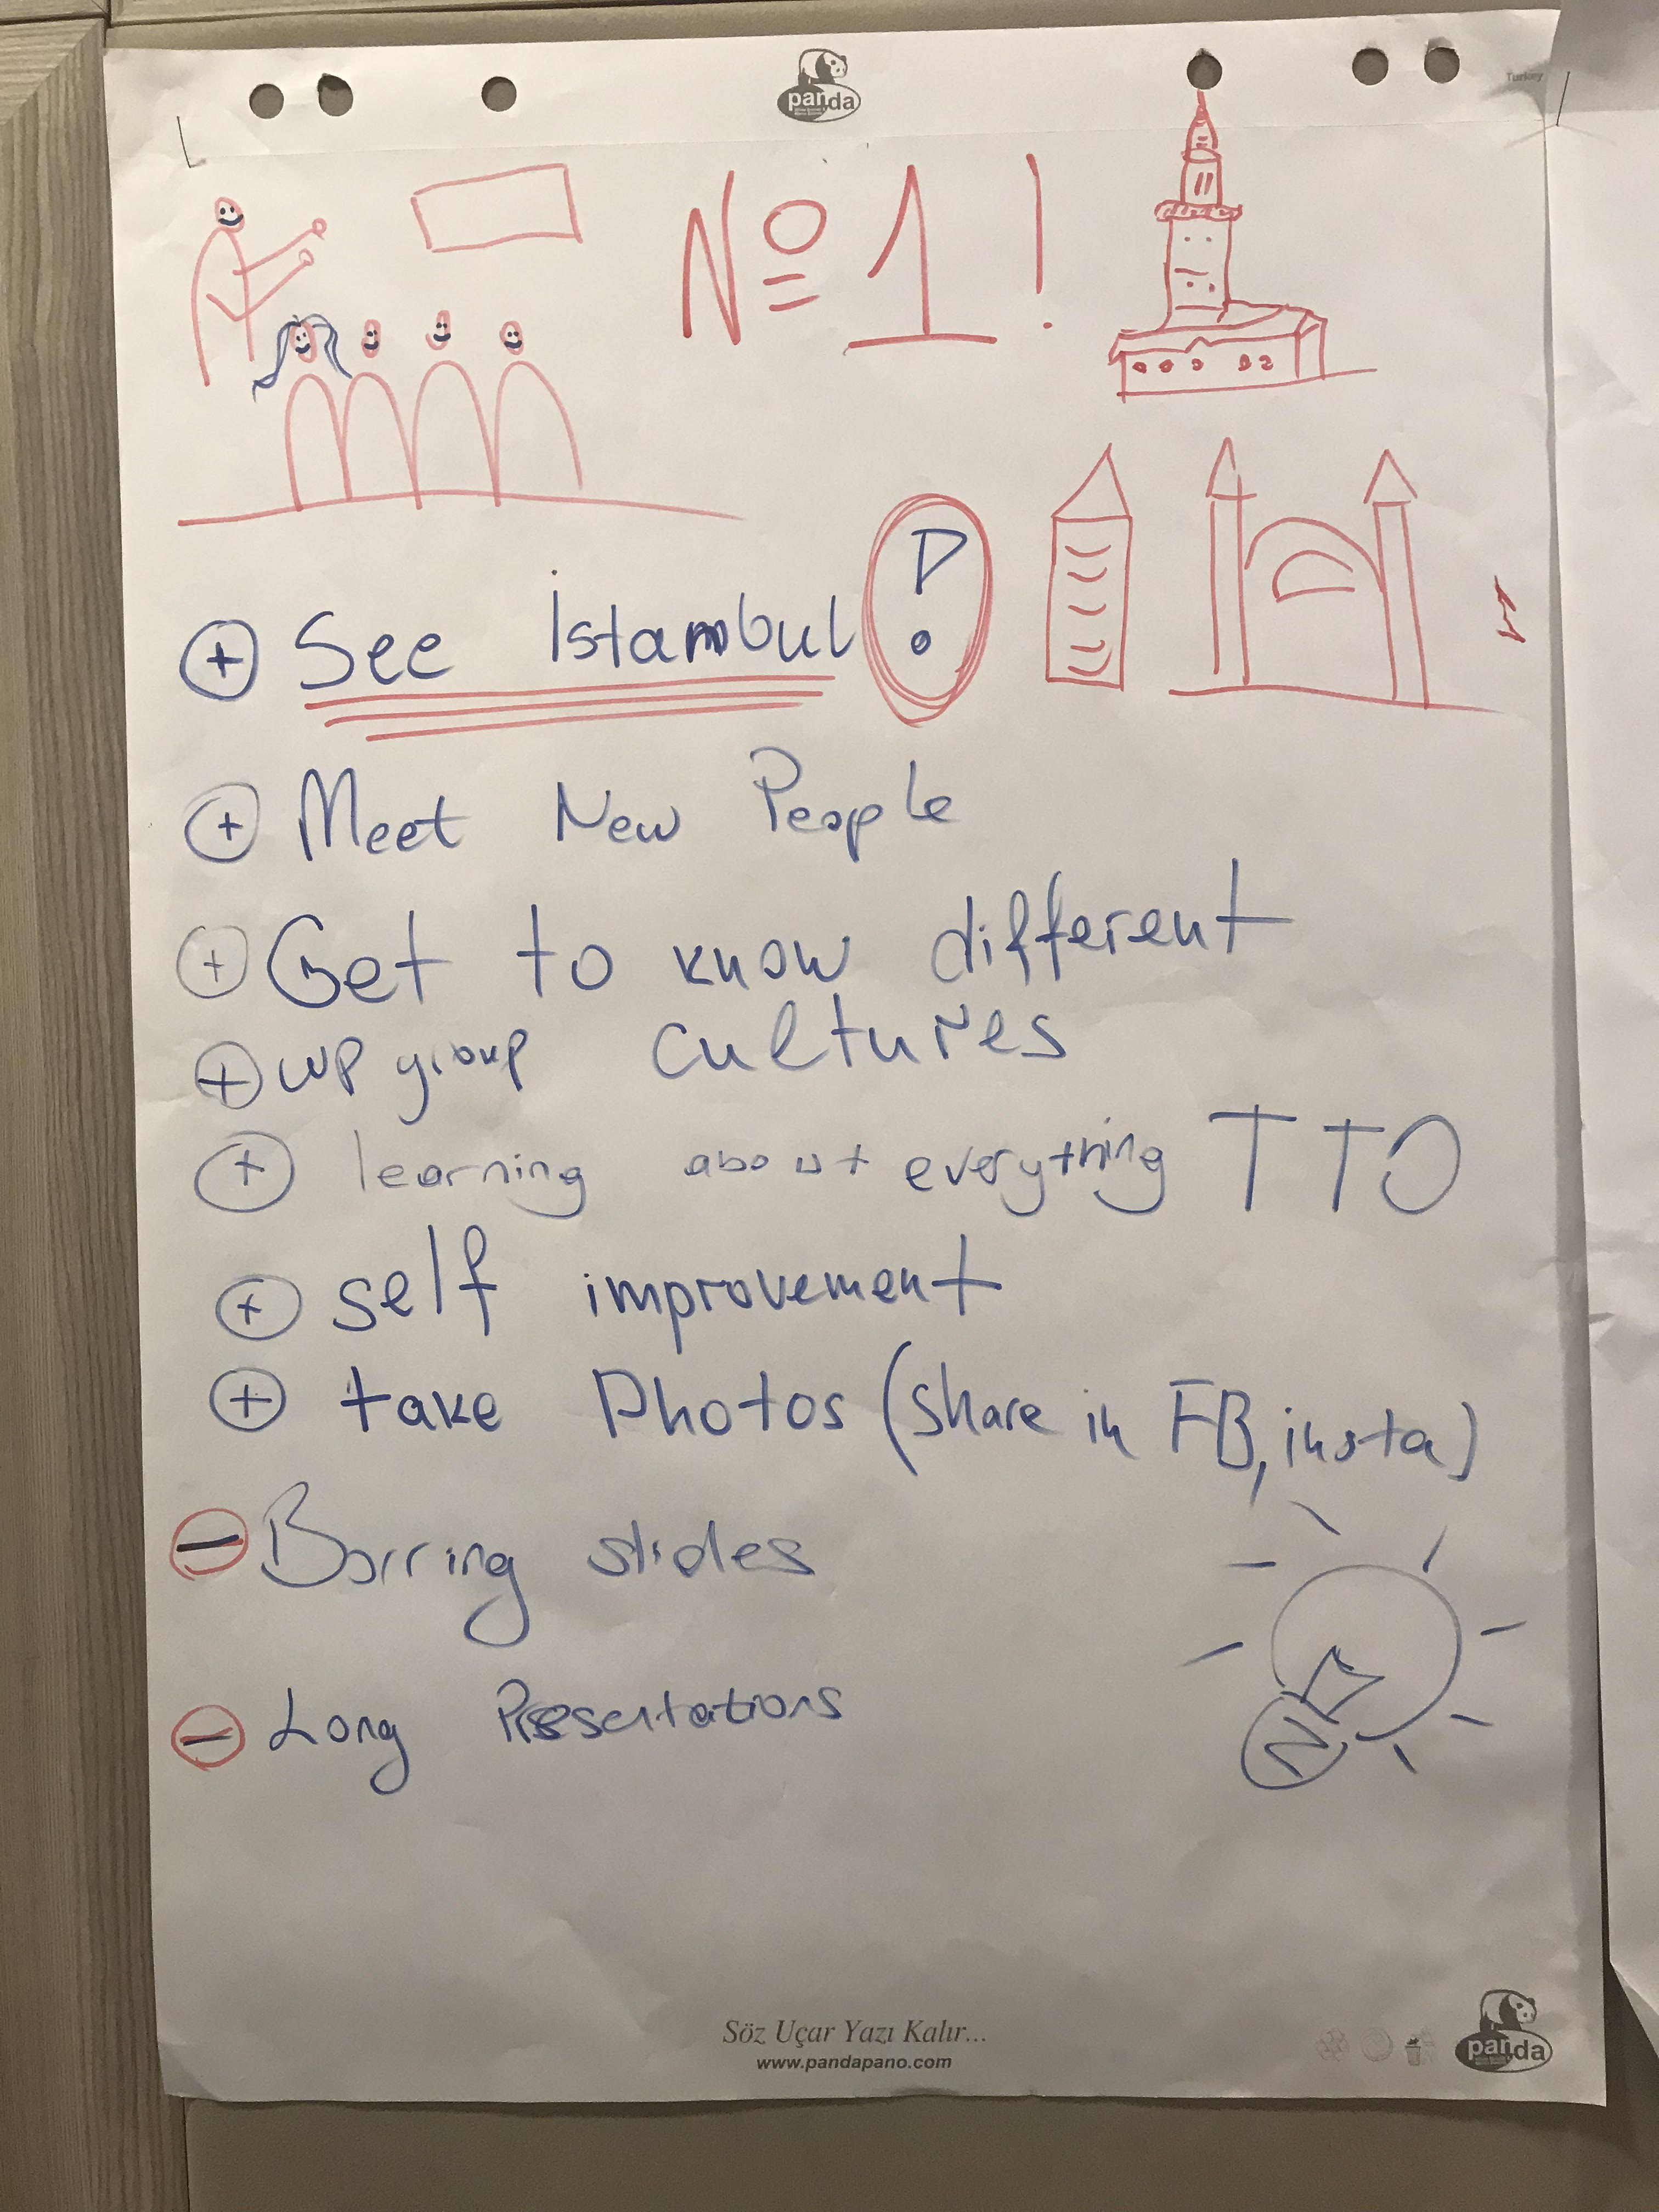 panda
Turkey
Nº 1 !
+ See İstambul !
+ Meet New People
+ Get to know different
cultures
+ WP group
+ learning about everything TTO
+ self improvement
+ take Photos (share in FB, insta)
- Borring slides
- Long Presentations
Söz Uçar Yazı Kalır...
www.pandapano.com
panda